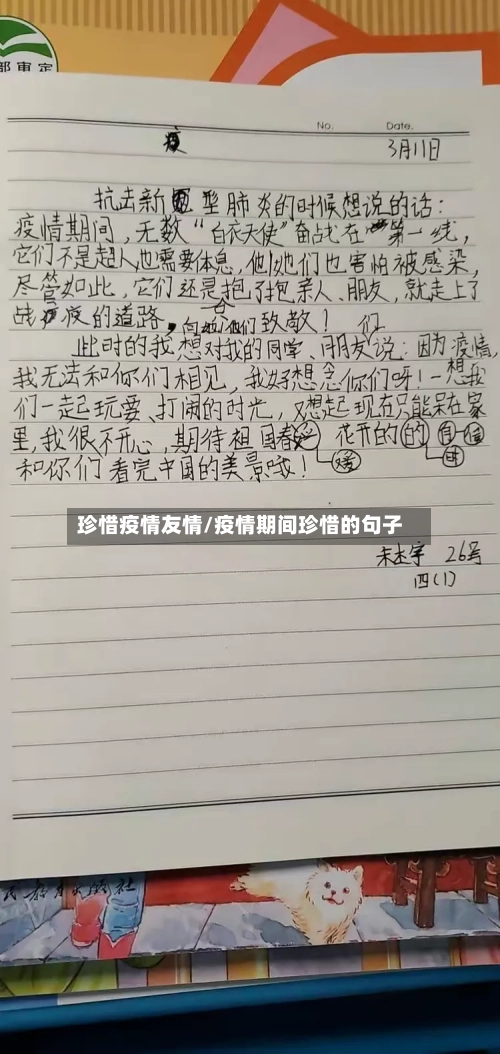 部审定
No. Date.
疫 3月11日
抗击新型肺炎的时候想说的话：
疫情期间，无数“白衣天使”奋战在第一线，
它们不是超人也需要体息，他/她们也害怕被感染，
尽管如此，它们还是抱了抱亲人、朋友，就走上了
战疫的道路，向他们致敬！
此时的我想对我的同学、朋友们说：因为疫情，
我无法和你们相见，我好想念你们呀！一想我
们一起玩耍、打闹的时光，又想起现在只能呆在家
里，我很不开心，期待祖国春暖花开的的自信时
和你们看完中国的美景哦！
珍惜疫情友情/疫情期间珍惜的句子
26号
四(1)
民教育出版社